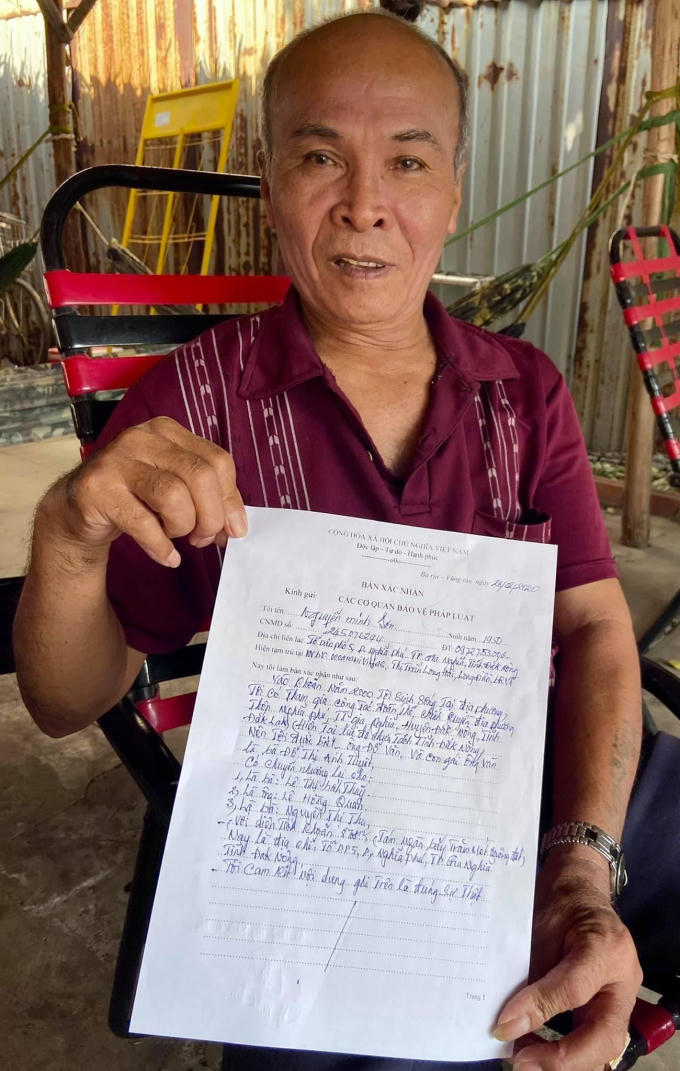 CỘNG HÒA XÃ HỘI CHỦ NGHĨA VIỆT NAM
Độc lập - Tự do - Hạnh phúc
-------o0o-------
Bà rịa – Vũng tàu ngày 26/5/2020
BẢN XÁC NHẬN
Kính gửi: CÁC CƠ QUAN BẢO VỆ PHÁP LUẬT
Tôi tên: Nguyễn Minh Sơn Sinh năm: 1950
CNMD số: 245076244 ĐT: 0972753096
Địa chỉ liên lạc: Tổ dân phố 5, P. Nghĩa phú, TP. Gia Nghĩa, Tỉnh Đăk Nông
Hiện tạm trú tại Thị Trấn Long Hải, Long Điền, BR-VT
Nay tôi làm bản xác nhận như sau:
Vào khoản năm 2000. Tôi sinh sống tại địa phương,
Tôi có tham gia công tác đoàn thể, chính quyền địa phương
Thôn Nghĩa phú, TT- gia Nghĩa, Huyện Đăk Nông, Tỉnh
Đăk Lăk (Hiện tại là đã chia tách Tỉnh Đăk Nông)
Nên tôi được biết ông Đỗ Văn, và con gái ông Văn
là bà Đỗ Thị Anh Thuyết
Có chuyển nhượng lại cho:
1, Là bà: Lê Thị Thuý
2, Là ông: Lê Hồng Quân
3, Là bà: Nguyễn Thị Thu,
- Với diện tích khoản (Tám ngàn bảy trăm mét vuông đất)
Nay là địa chỉ: Tổ DP5, P, Nghĩa phú, TP. Gia Nghĩa
Tỉnh Đăk Nông.
- Tôi cam kết nội dung ghi trên là đúng sự thật.
Trang 1